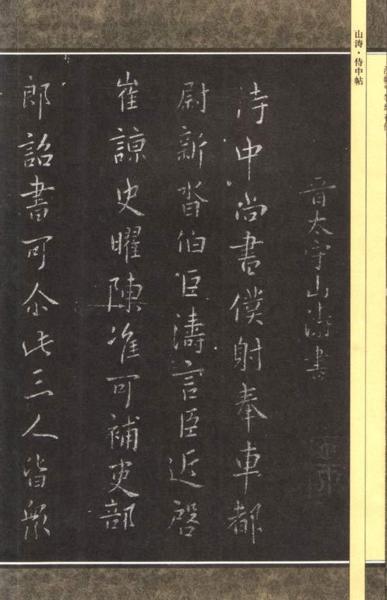 山涛·侍中帖
晋太守山涛書
侍中尚書僕射奉車都
尉新沓伯臣濤言臣近啓
崔諒史曜陳准可補吏部
郎詔書可尒此三人皆衆